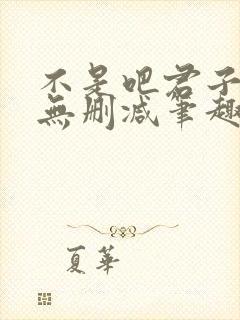 不是吧君子
無删减筆趣
夏華